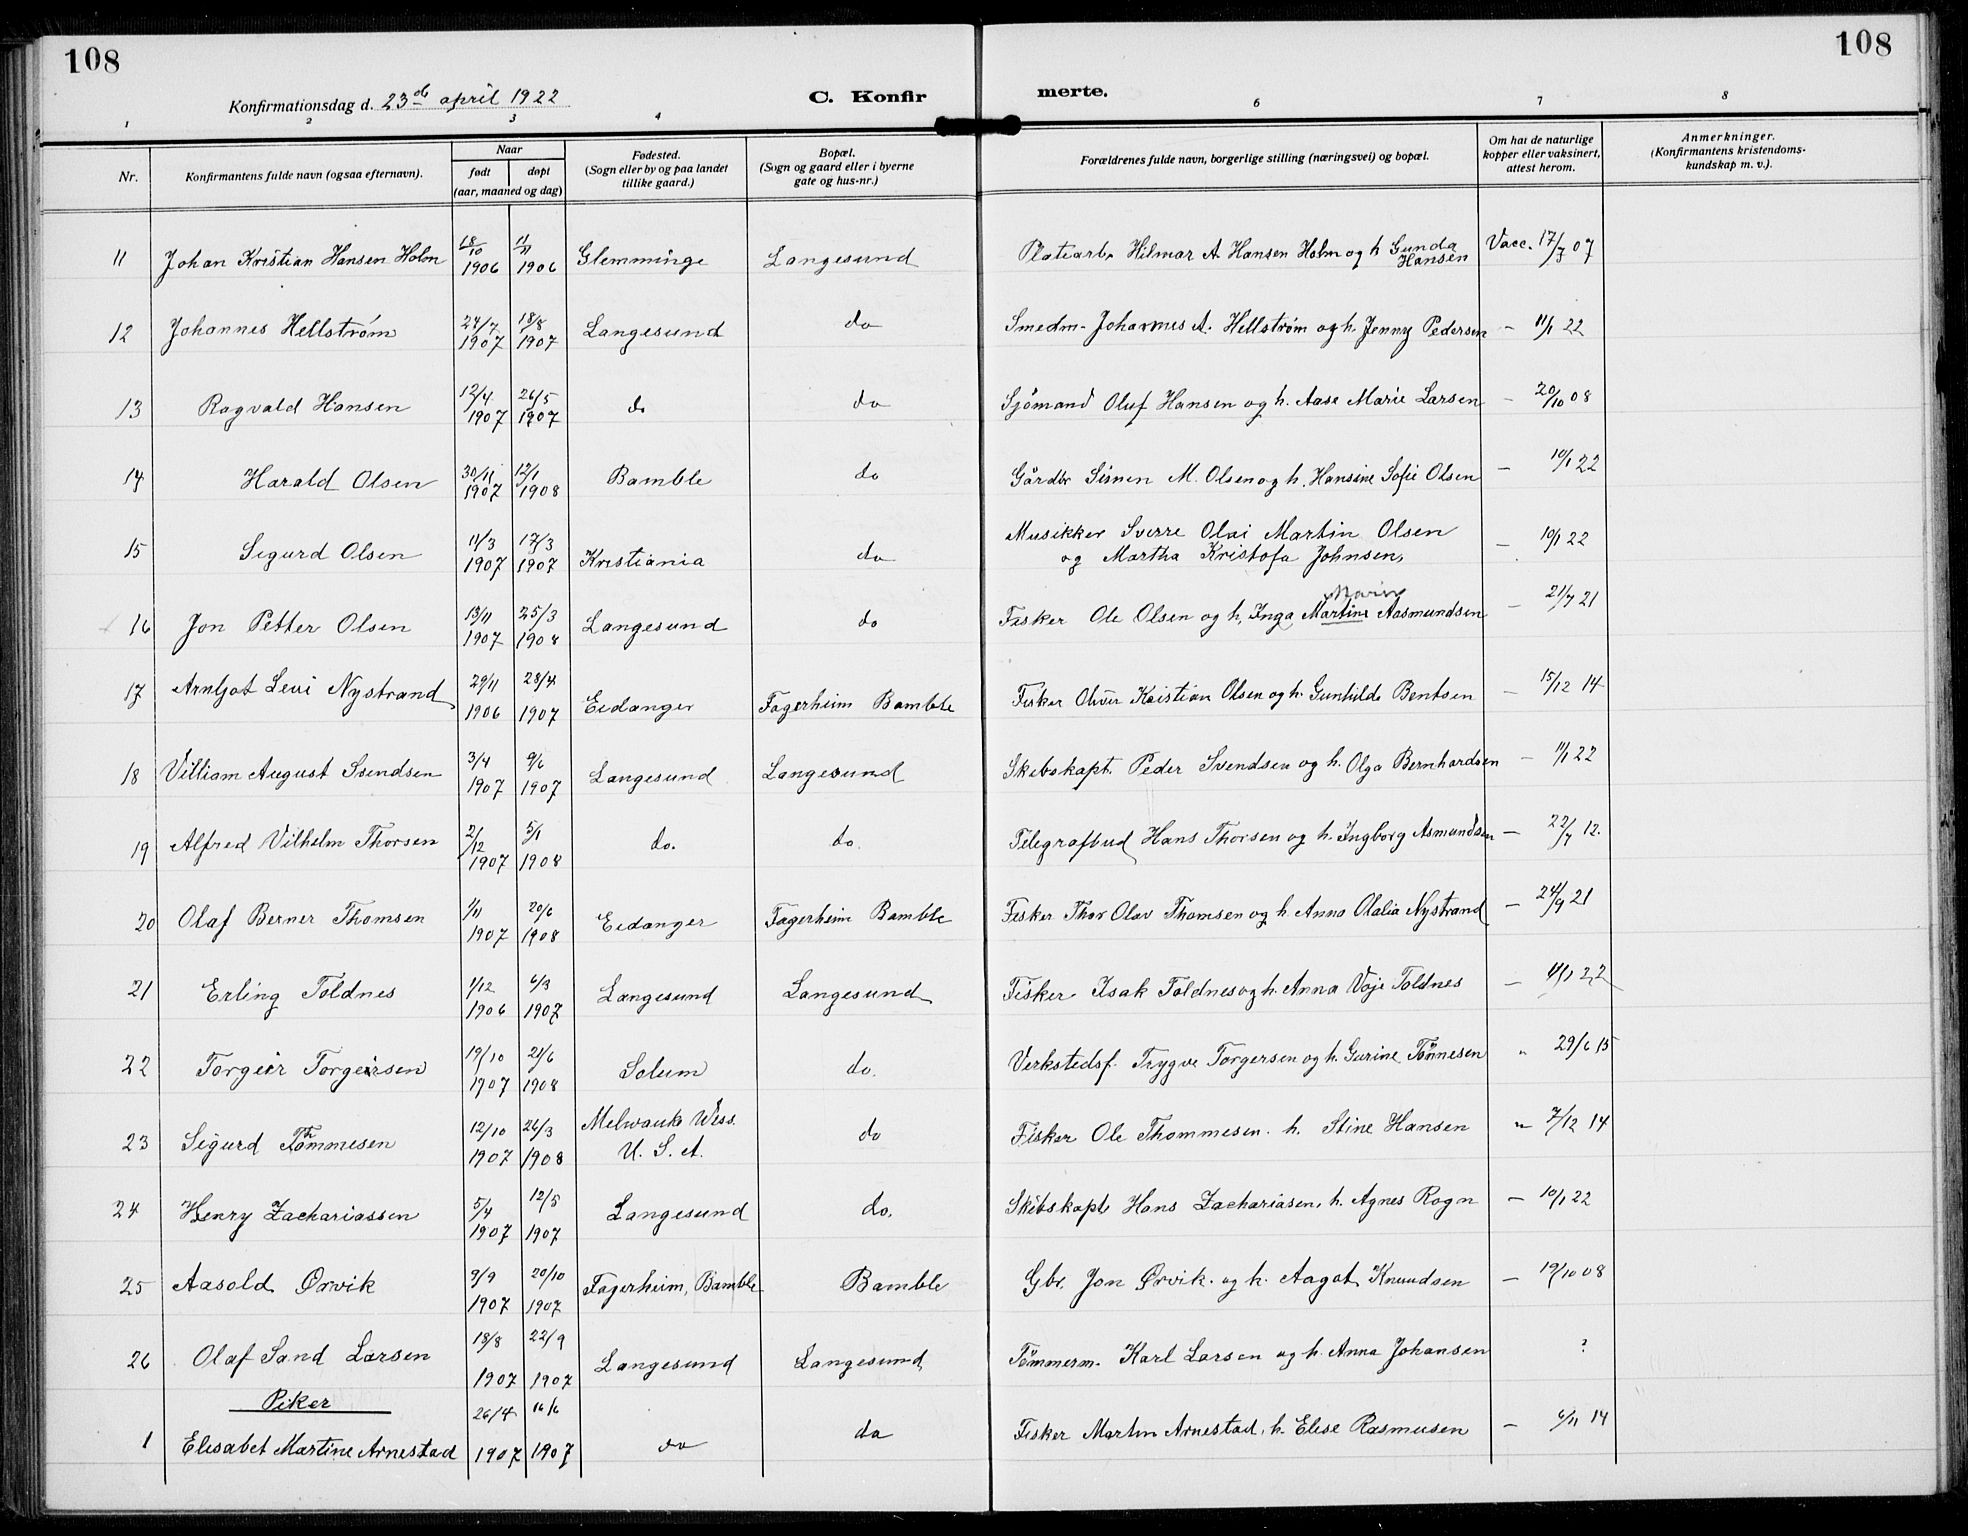 108
108
Konfirmationsdag d. 23de april 1922
C. Konfir
merte.
1 2 3 4 6 7 8
Nr.
Konfirmantens fulde navn (ogsaa efternavn).
Naar
født døpt
(aar, maaned og dag)
Fødested.
(Sogn eller by og paa landet
tillike gaard.)
Bopæl.
(Sogn og gaard eller i byerne
gate og hus-nr.)
Forældrenes fulde navn, borgerlige stilling (næringsvei) og bopæl.
Om har de naturlige
kopper eller vaksinert,
attest herom.
Anmerkninger.
(Konfirmantens kristendoms-
kundskap m. v.).
11 Johan Kristian Hansen Holm 18/10 1906 11/11 1906 Glemminge Langesund Platearb. Hilmar A. Hansen Holm og h. Gunda Hansen Vacc. 17/3 07
12 Johannes Hellstrøm 24/7 1907 18/8 1907 Langesund do Smedm. Johannes A. Hellstrøm og h. Jenny Pedersen – 11/1 22
13 Ragvald Hansen 12/4 1907 26/5 1907 do do Sjömand Oluf Hansen og h. Aase Marie Larsen – 20/10 08
14 Harald Olsen 30/11 1907 12/1 1908 Bamble do Gårdbr Simen M. Olsen og h. Hansine Sofie Olsen – 10/1 22
15 Sigurd Olsen 11/3 1907 17/3 1907 Kristiania do Musikker Sverre Olai Martin Olsen
og Martha Kristofa Johnsen, – 10/1 22
16 Jon Petter Olsen 13/11 1907 25/3 1908 Langesund do Fisker Ole Olsen og h. Inga Martine Marie Aasmundsen – 21/7 21
17 Arnljot Levi Nystrand 29/11 1906 28/4 1907 Eidanger Fagerheim Bamble Fisker Oliver Kristian Olsen og h. Gunhilde Bentsen – 15/12 14
18 Villiam August Svendsen 3/4 1907 9/6 1907 Langesund Langesund Skibskapt. Peder Svendsen og h. Olga Bernhardsen – 11/1 22
19 Alfred Vilhelm Thorsen 2/12 1907 5/1 1908 do. do. Telegrafbud Hans Thorsen og h. Ingborg Asmundsen – 22/7 12.
20 Olaf Berner Thomsen 1/11 1907 20/6 1908 Eidanger Fagerheim Bamble Fisker Thor Olav Thomsen og h. Anna Olalia Nystrand – 24/9 21
21 Erling Toldnes 1/12 1906 6/3 1907 Langesund Langesund Fisker Isak Toldnes og h. Anna Voje Toldnes – 11/1 22
22 Torgeir Torgeirsen 19/10 1907 21/6 1908 Solum do. Verkstedsf. Trygve Torgersen og h. Gurine Tönnesen " 29/6 15
23 Sigurd Thommesen 12/10 1907 26/3 1908 Melwauke Wiss. U. S. A. do Fisker Ole Thommesen. h. Stine Hansen " 7/12 14
24 Henry Zachariassen 5/4 1907 12/5 1907 Langesund do. Skibskapt Hans Zachariasen, h. Agnes Rogn – 10/1 22
25 Aasold Ørvik 9/9 1907 20/10 1907 Fagerheim, Bamble Bamble Gbr. Jon Ørvik. og h. Aagot Knuudsen – 19/10 08
26 Olaf Sand Larsen 18/8 1907 22/9 1907 Langesund Langesund Tømmerm. Karl Larsen og h. Anna Johansen ?
Piker
1 Elisabet Martine Arnestad 26/4 1907 16/6 1907 do do Fisker Martin Arnestad, h. Elise Rasmusen – 6/11 14